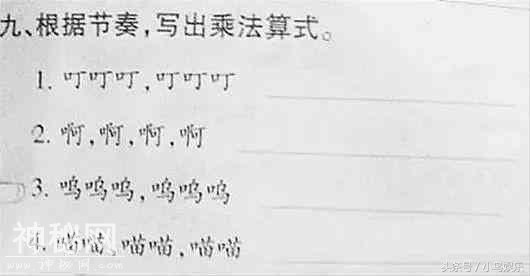 九、根据节奏,写出乘法算式。
1. 叮叮叮,叮叮叮
2. 啊,啊,啊,啊
3. 呜呜呜,呜呜呜
4. 喵喵,喵喵,喵喵
神秘网
www.shenmiwang.com
头条号 / 小鸟娱乐